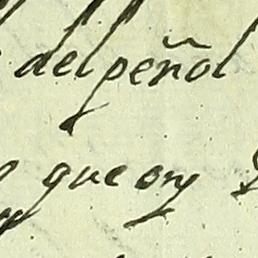 del peñol
que oy